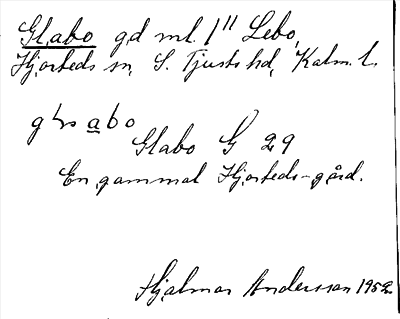 Glabo gd ml. 1" Lebo,
Hjorteds sn, S. Tjusts hd, Kalm. l.
abo
Glabo G 29
En gammal Hjorteds-gård.
Hjalmar Andersson 1952